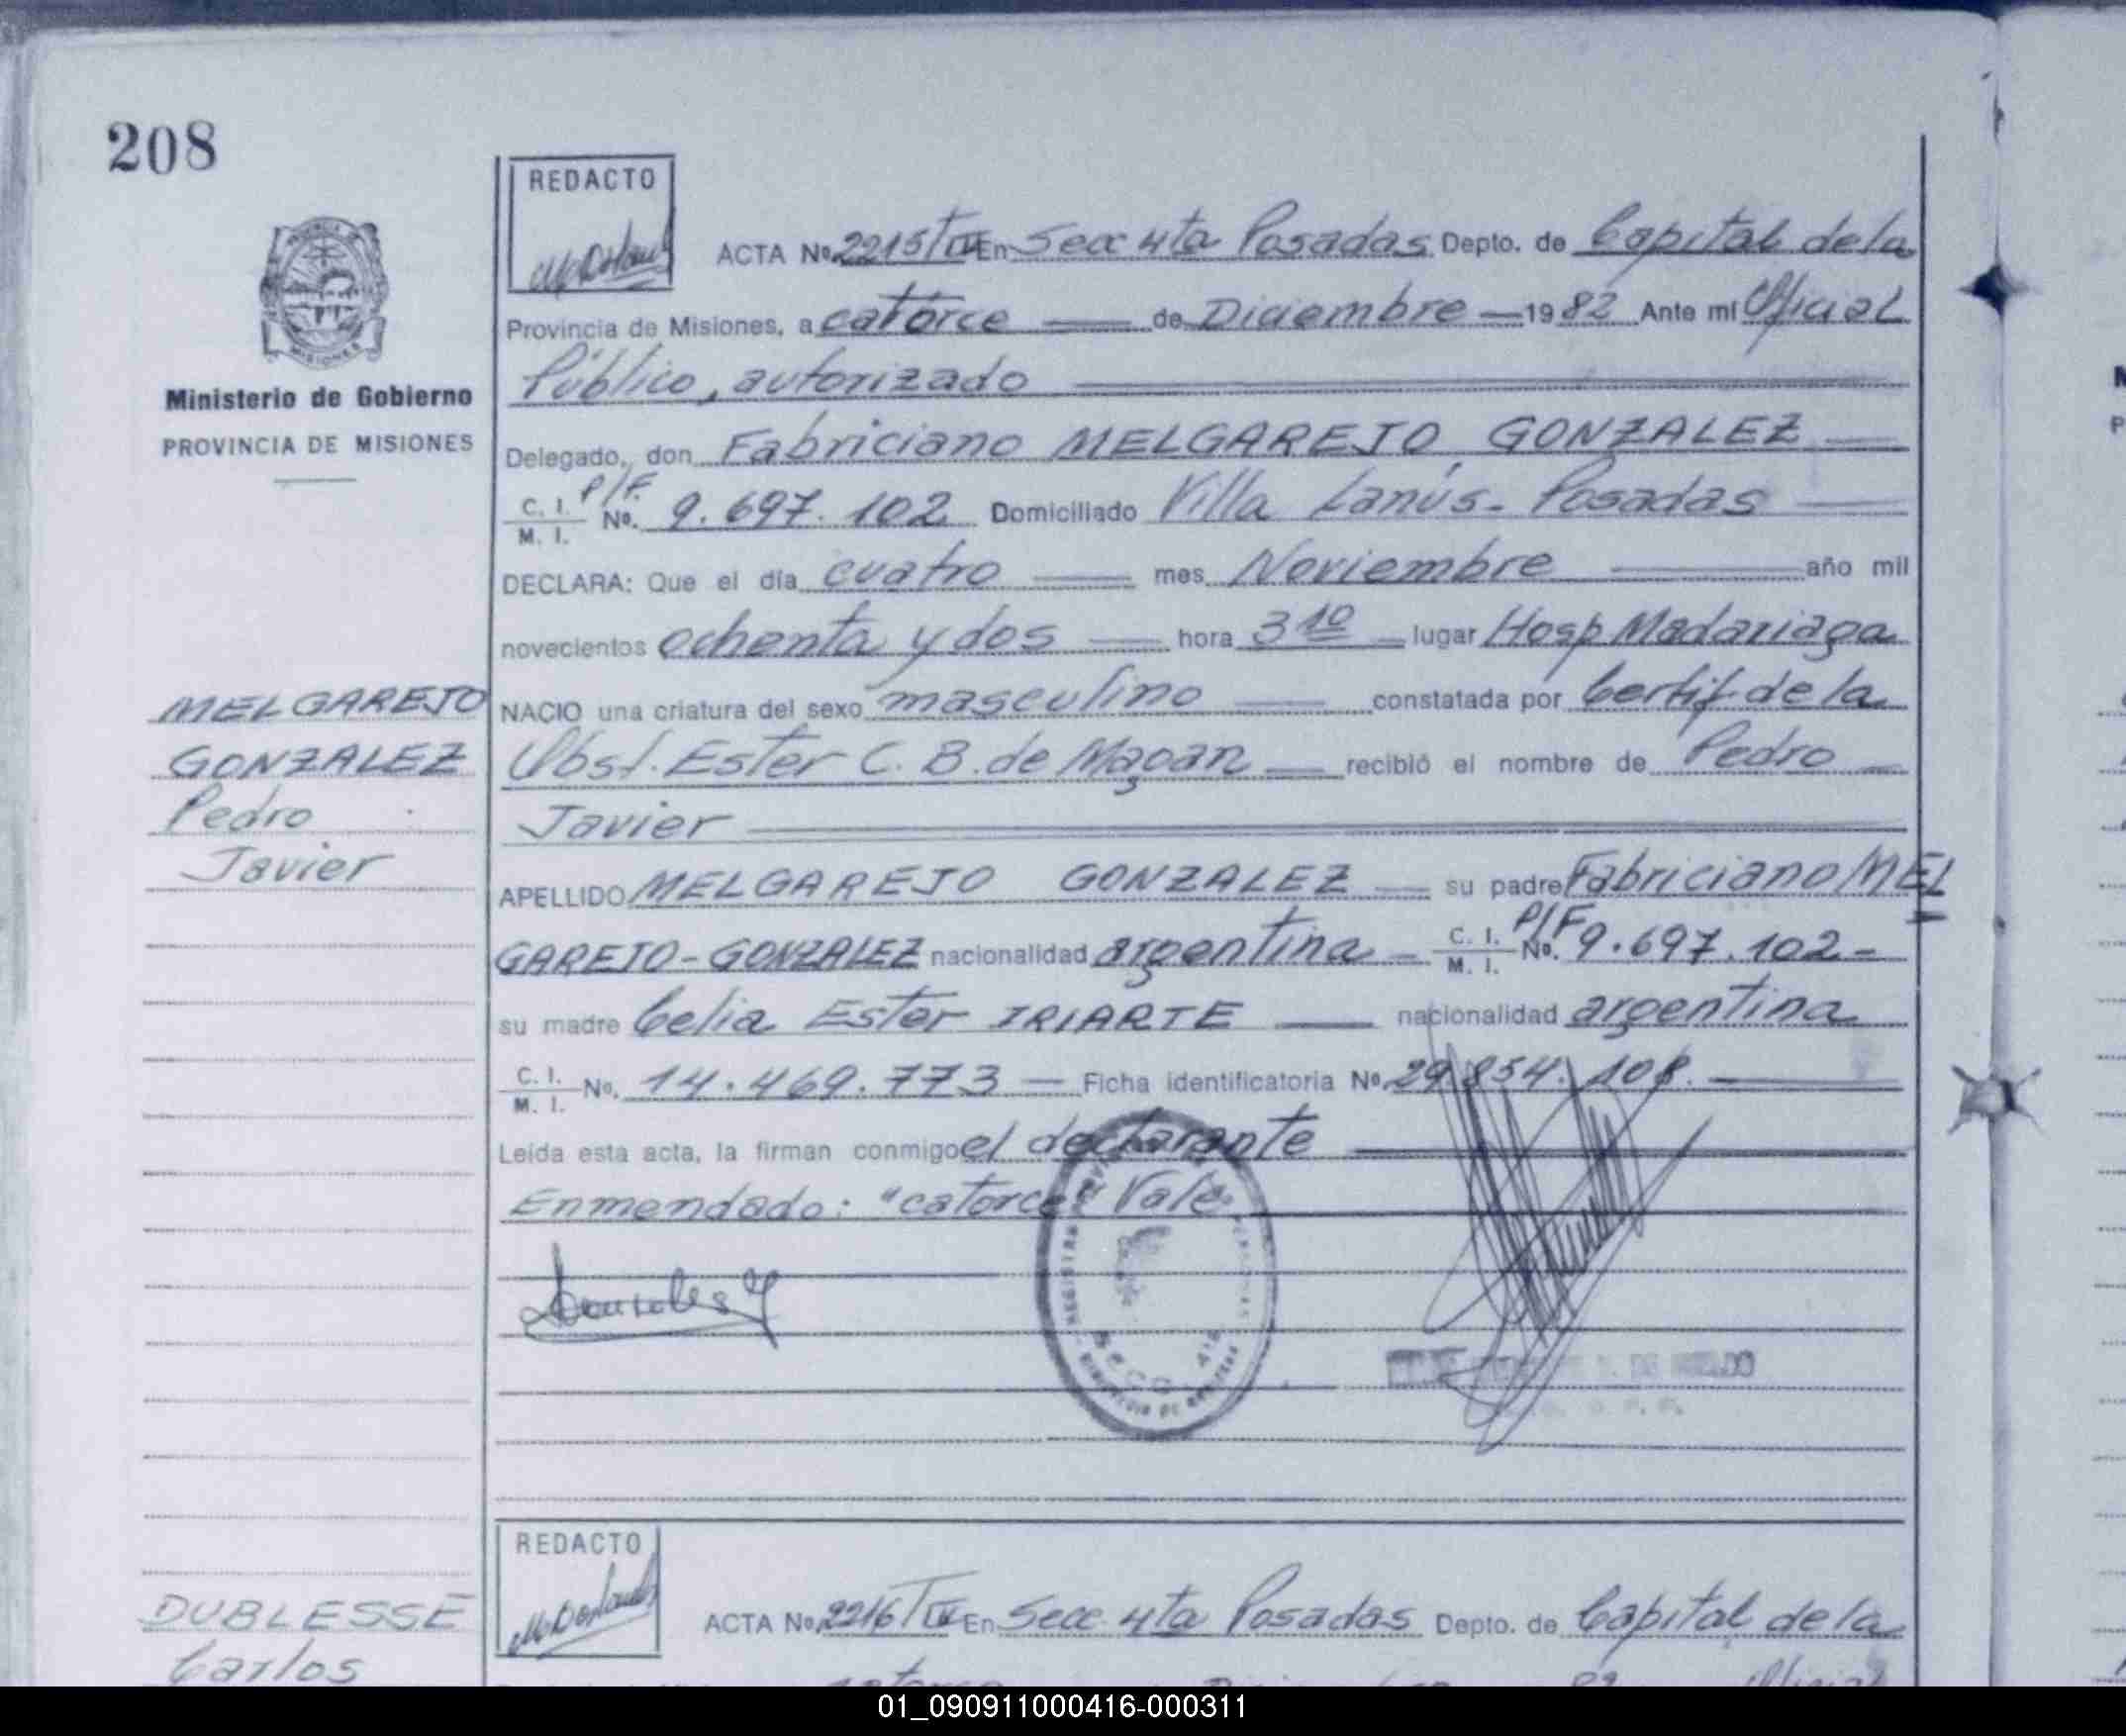 208
REDACTO
ACTA No. 2215/TIV En Secc 4ta Posadas Depto. de Capital de la
Provincia de Misiones, a catorce de Diciembre 1982 Ante mí Oficial
Público, autorizado
Ministerio de Gobierno
PROVINCIA DE MISIONES
Delegado, don Fabriciano MELGAREJO GONZALEZ
C. I. P/F.
M. I. No. 9.697.102 Domiciliado Villa Lanús - Posadas
DECLARA: Que el día cuatro mes Noviembre año mil
novecientos ochenta y dos hora 3 10 lugar Hosp Madariaga
MELGAREJO
GONZALEZ
Pedro
Javier
NACIO una criatura del sexo masculino constatada por Certif. de la
Obst. Ester C. B. de Magan recibió el nombre de Pedro
Javier
APELLIDO MELGAREJO GONZALEZ su padre Fabriciano MEL
GAREJO-GONZALEZ nacionalidad argentina - C. I. M. I. P/F No. 9.697.102-
su madre Celia Ester IRIARTE nacionalidad argentina
C. I. M. I. No. 14.469.773 - Ficha identificatoria No. 29.854.108.
Leída esta acta, la firman conmigo el declarante
Enmendado: "catorce" Vale
REDACTO
ACTA No. 2216/TIV En Secc 4ta Posadas Depto. de Capital de la
DUBLESSE
Carlos
01_090911000416-000311